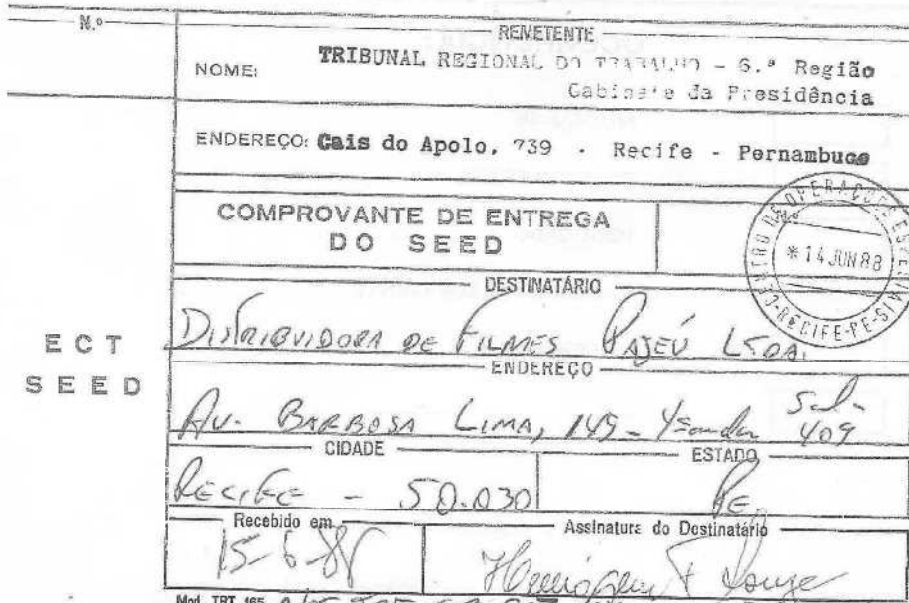 N.º
REMETENTE
NOME: TRIBUNAL REGIONAL DO TRABALHO - 6.ª Região
Gabinete da Presidência
ENDEREÇO: Cais do Apolo, 739 - Recife - Pernambuco
COMPROVANTE DE ENTREGA
DO SEED
N.º
CENTRO DE OPERAÇÕES ESPECIAIS
* 14 JUN 88
RECIFE-PE
DESTINATÁRIO
DISTRIBUIDORA DE FILMES PAJEÚ LTDA.
ECT
SEED
ENDEREÇO
AV. BARBOSA LIMA, 149 - 4º andar Sala 409
CIDADE
ESTADO
RECIFE - 50.030
PE
Recebido em
Assinatura do Destinatário
15-6-88
Mod. TRT 165